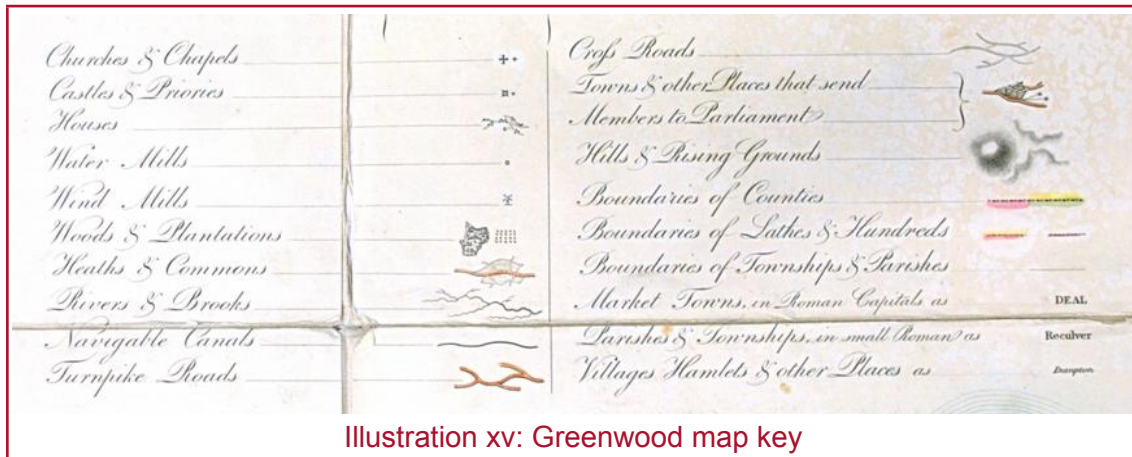 Churches & Chapels
Castles & Priories
Houses
Water Mills
Wind Mills
Woods & Plantations
Heaths & Commons
Rivers & Brooks
Navigable Canals
Turnpike Roads
Croſs Roads
Towns & other Places that send
Members to Parliament
Hills & Rising Grounds
Boundaries of Counties
Boundaries of Lathes & Hundreds
Boundaries of Townships & Parishes
Market Towns, in Roman Capitals as DEAL
Parishes & Townships, in small Roman as Reculver
Villages Hamlets & other Places as
Illustration xv: Greenwood map key